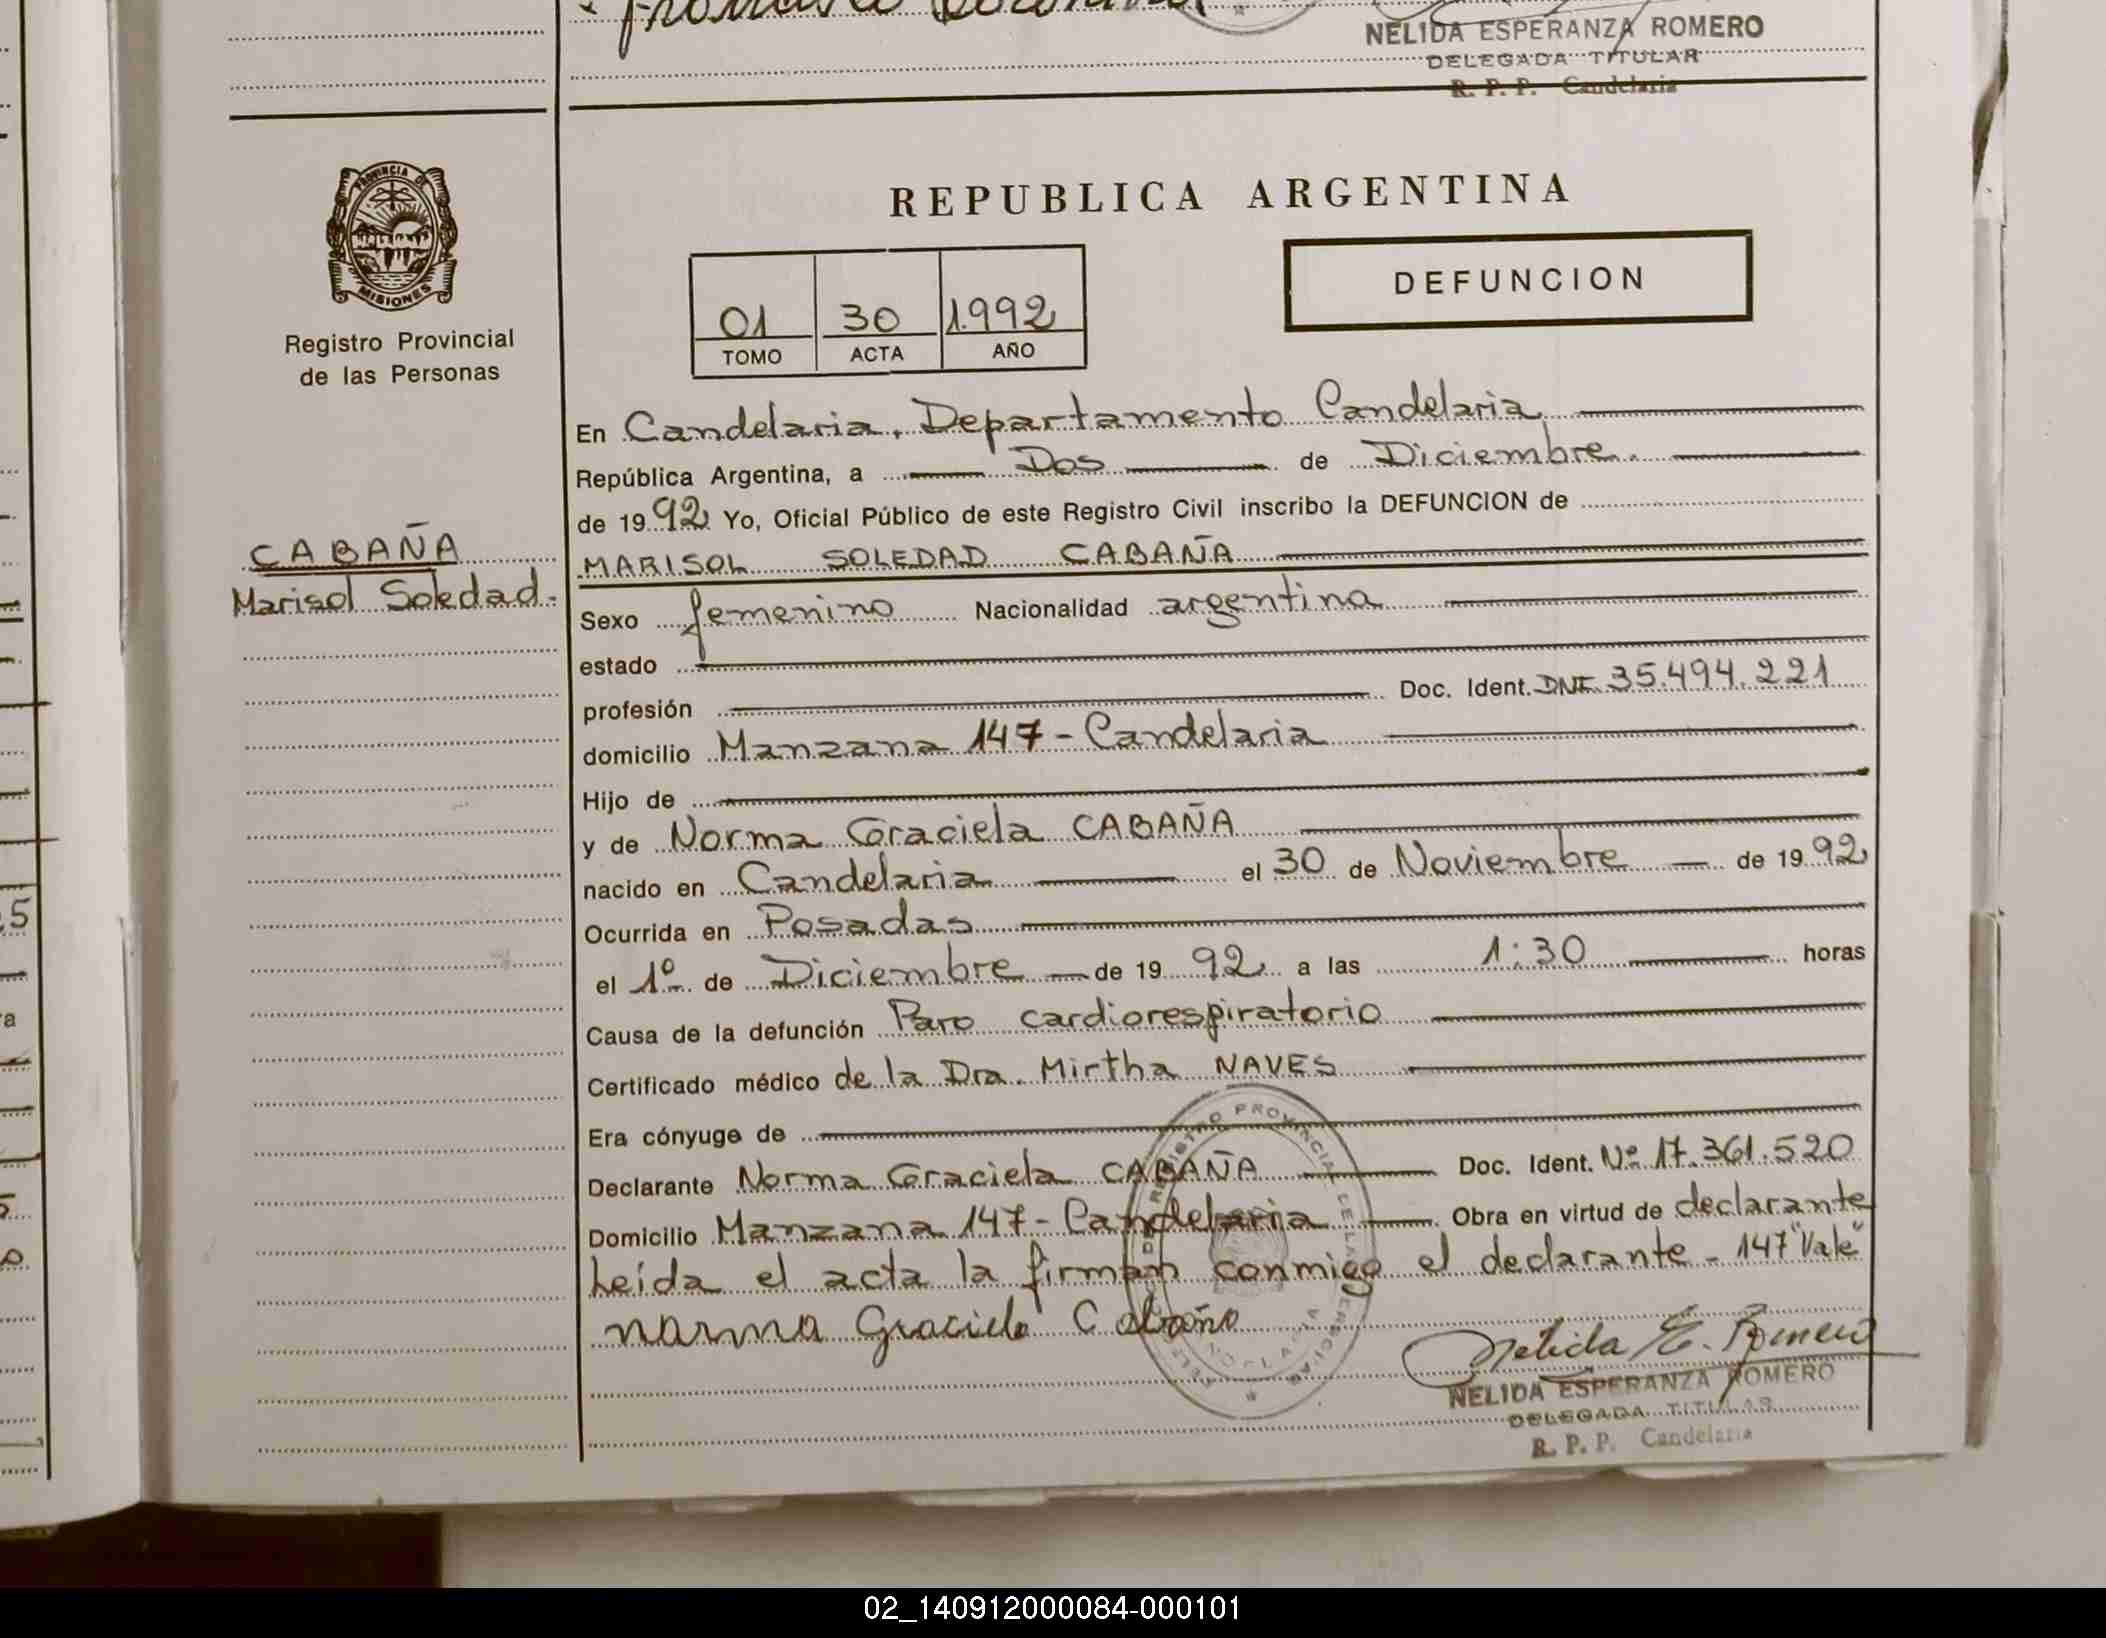 NELIDA ESPERANZA ROMERO
DELEGADA TITULAR
R. P. P. Candelaria
PROVINCIA DE
MISIONES
Registro Provincial
de las Personas
REPUBLICA ARGENTINA
01 30 1992
TOMO ACTA AÑO
DEFUNCION
En Candelaria, Departamento Candelaria
República Argentina, a Dos de Diciembre
de 1992 Yo, Oficial Público de este Registro Civil inscribo la DEFUNCION de
CABAÑA
Marisol Soledad.
MARISOL SOLEDAD CABAÑA
Sexo femenino Nacionalidad argentina
estado
profesión Doc. Ident. DNI 35.494.221
domicilio Manzana 147 - Candelaria
Hijo de
y de Norma Graciela CABAÑA
nacido en Candelaria el 30 de Noviembre de 1992
Ocurrida en Posadas
el 1º de Diciembre de 1992 a las 1:30 horas
Causa de la defunción Paro cardiorespiratorio
Certificado médico de la Dra. Mirtha NAVES
Era cónyuge de
Declarante Norma Graciela CABAÑA Doc. Ident. Nº 17.361.520
Domicilio Manzana 147 - Candelaria Obra en virtud de declarante
Leída el acta la firman conmigo el declarante - 147 "Vale"
Norma Graciela Cabaña
REGISTRO PROVINCIAL DE LAS PERSONAS
Nelida E. Romero
NELIDA ESPERANZA ROMERO
DELEGADA TITULAR
R. P. P. Candelaria
02_140912000084-000101